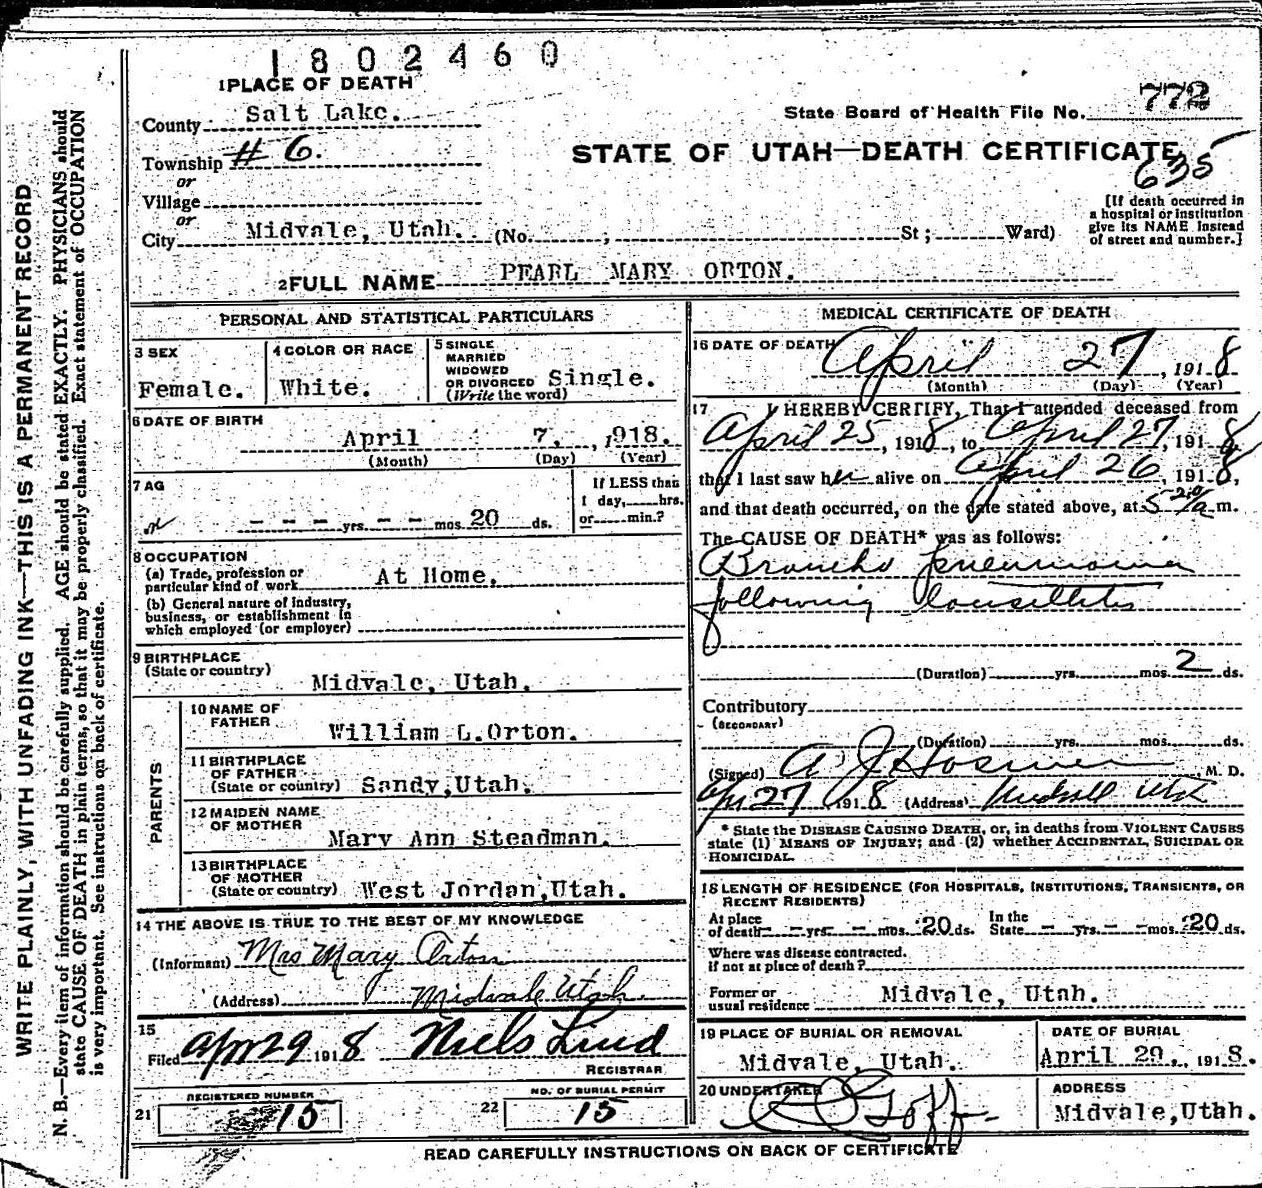 1802460
1 PLACE OF DEATH
County Salt Lake.
State Board of Health File No. 772
Township # 6.
STATE OF UTAH—DEATH CERTIFICATE
635
or
Village
or
City Midvale, Utah. (No. ; St ; Ward)
[If death occurred in
a hospital or institution
give its NAME instead
of street and number.]
2 FULL NAME PEARL MARY ORTON.
PERSONAL AND STATISTICAL PARTICULARS
3 SEX
Female.
4 COLOR OR RACE
White.
5 SINGLE
MARRIED
WIDOWED
OR DIVORCED Single.
(Write the word)
6 DATE OF BIRTH
April 7, 1918.
(Month) (Day) (Year)
7 AG
- - - yrs. - - mos. 20 ds.
If LESS than
1 day, hrs.
or min.?
8 OCCUPATION
(a) Trade, profession or
particular kind of work At Home.
(b) General nature of industry,
business, or establishment in
which employed (or employer)
9 BIRTHPLACE
(State or country)
Midvale, Utah.
PARENTS
10 NAME OF
FATHER
William L. Orton.
11 BIRTHPLACE
OF FATHER
(State or country) Sandy, Utah.
12 MAIDEN NAME
OF MOTHER
Mary Ann Steadman.
13 BIRTHPLACE
OF MOTHER
(State or country) West Jordan, Utah.
14 THE ABOVE IS TRUE TO THE BEST OF MY KNOWLEDGE
(Informant) Mrs Mary Orton
(Address) Midvale Utah.
15
Filed Apr 29 1918 Niels Lind
REGISTRAR
REGISTERED NUMBER
21 15
NO. OF BURIAL PERMIT
22 15
MEDICAL CERTIFICATE OF DEATH
16 DATE OF DEATH
April 27, 1918
(Month) (Day) (Year)
17 I HEREBY CERTIFY, That I attended deceased from
April 25, 1918, to April 27, 1918,
that I last saw her alive on April 26, 1918,
and that death occurred, on the date stated above, at 5 20/a m.
The CAUSE OF DEATH* was as follows:
Broncho pneumonia
following
(Duration) yrs. mos. 2 ds.
Contributory
(SECONDARY)
(Duration) yrs. mos. ds.
(Signed) A J Hosmer M. D.
Apr 27 1918 (Address) Midvale Utah
* State the DISEASE CAUSING DEATH, or, in deaths from VIOLENT CAUSES
state (1) MEANS OF INJURY; and (2) whether ACCIDENTAL, SUICIDAL OR
HOMICIDAL.
18 LENGTH OF RESIDENCE (FOR HOSPITALS, INSTITUTIONS, TRANSIENTS, OR
RECENT RESIDENTS)
At place
of death - - yrs. - - mos. 20 ds.
In the
State - - yrs. - - mos. 20 ds.
Where was disease contracted.
if not at place of death?
Former or
usual residence Midvale, Utah.
19 PLACE OF BURIAL OR REMOVAL
Midvale, Utah.
DATE OF BURIAL
April 29., 1918.
20 UNDERTAKER
Goff
ADDRESS
Midvale, Utah.
READ CAREFULLY INSTRUCTIONS ON BACK OF CERTIFICATE
WRITE PLAINLY, WITH UNFADING INK—THIS IS A PERMANENT RECORD
N. B.—Every item of information should be carefully supplied. AGE should be stated EXACTLY. PHYSICIANS should
state CAUSE OF DEATH in plain terms, so that it may be properly classified. Exact statement of OCCUPATION
is very important. See instructions on back of certificate.